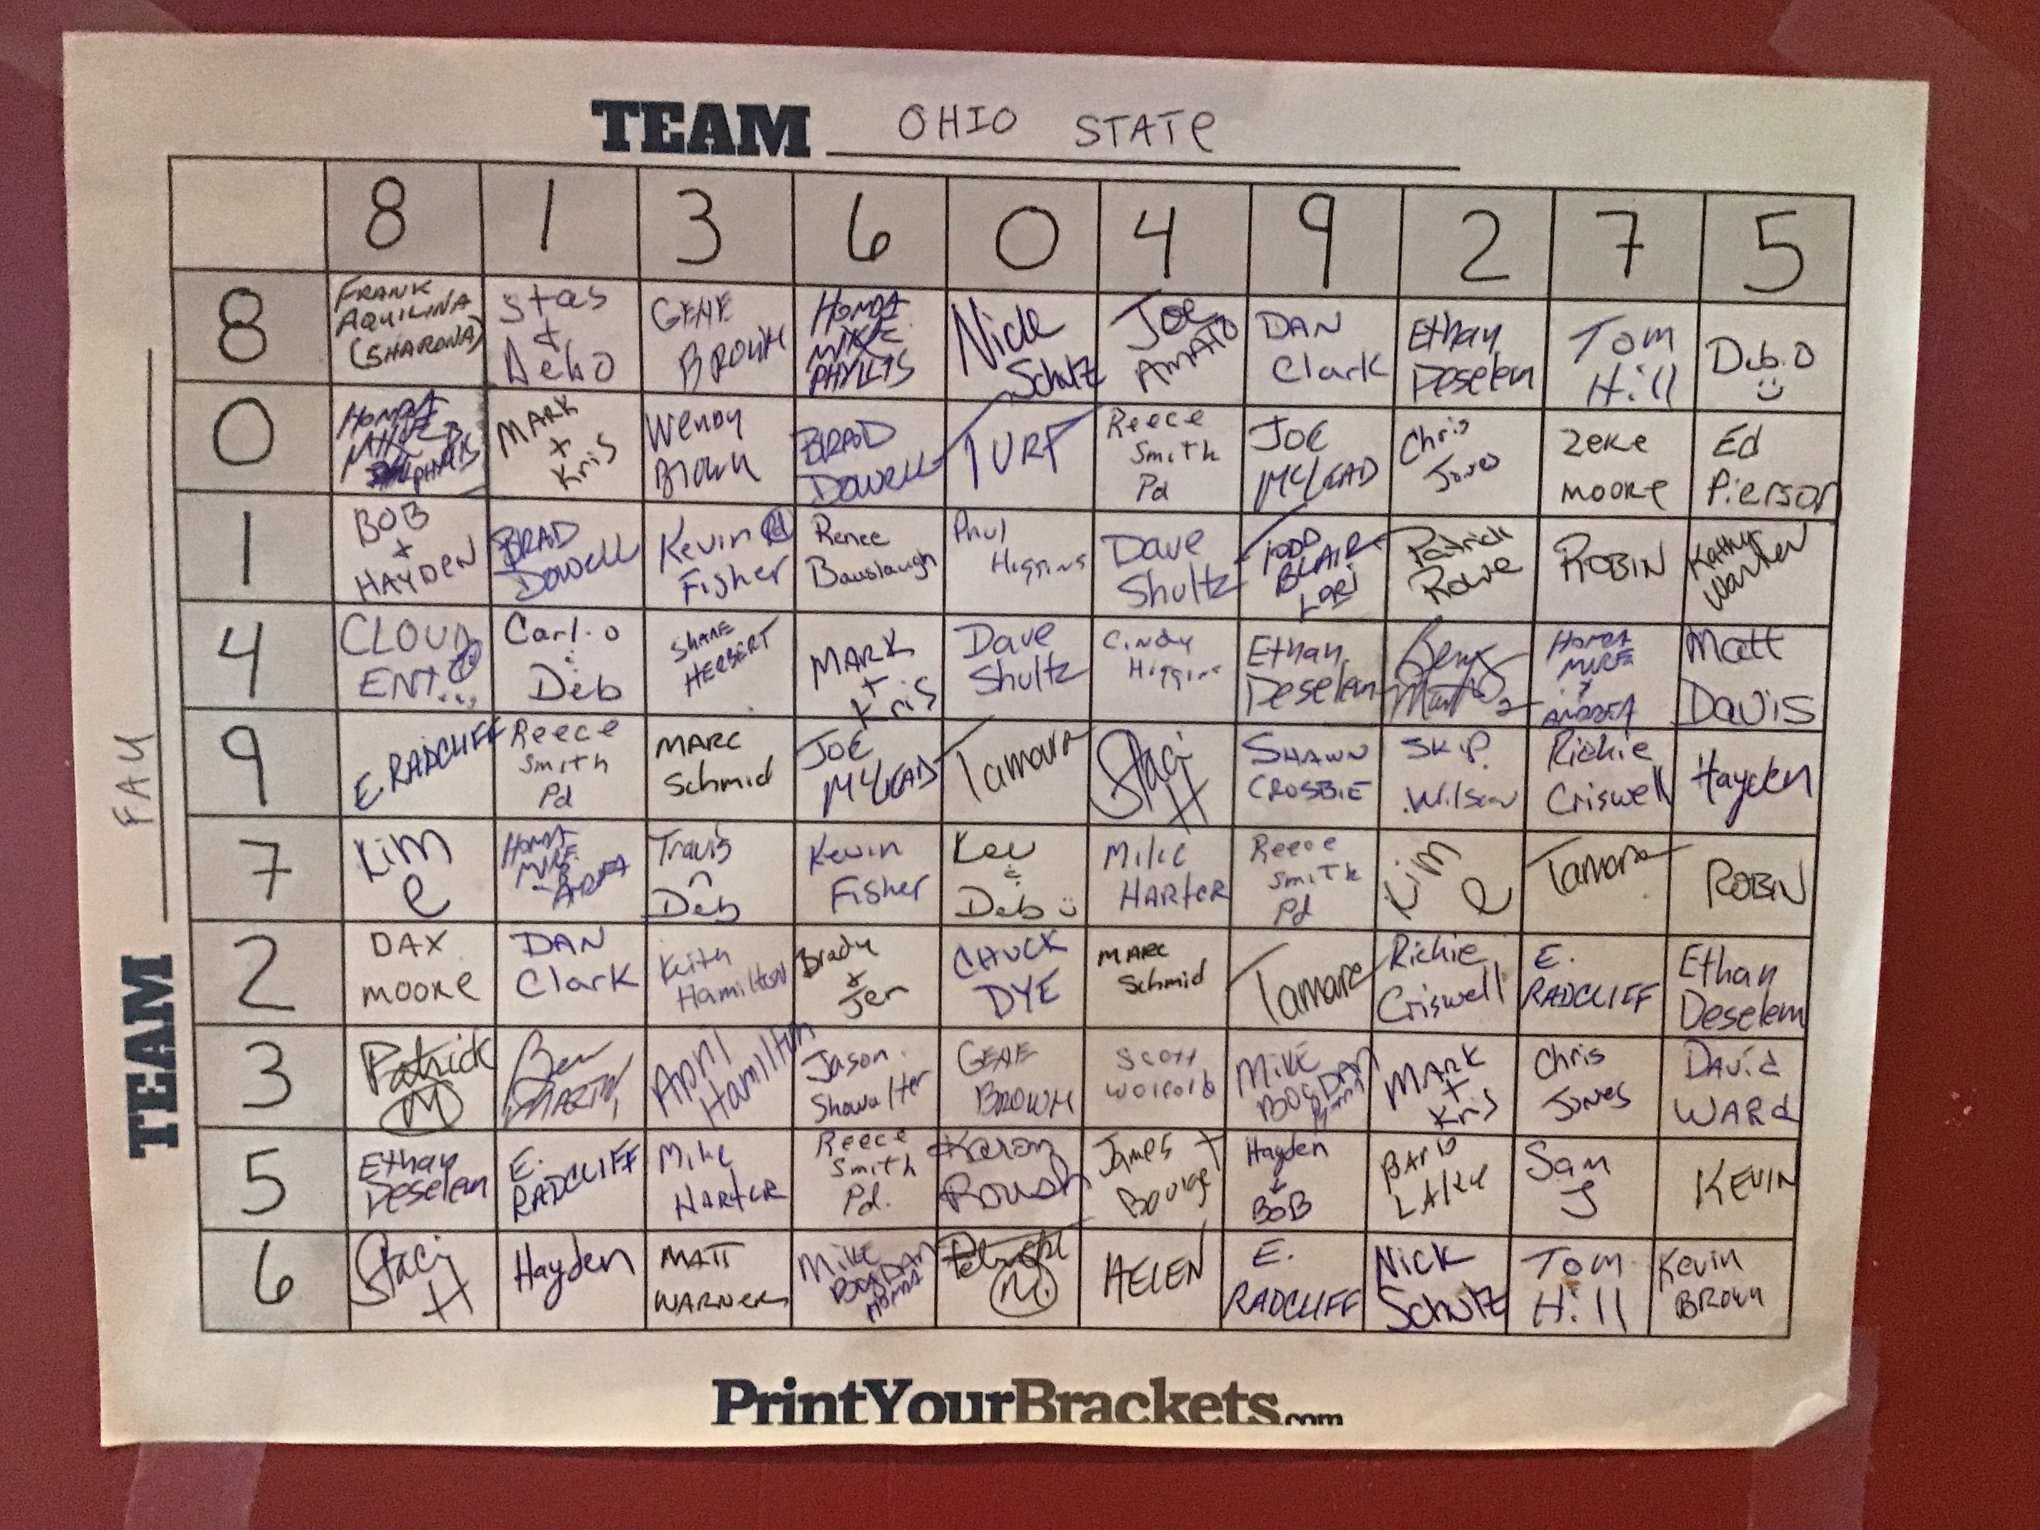 TEAM OHIO STATE
8 1 3 6 0 4 9 2 7 5
8 FRANK AQUILINA (SHARONA) Stas + Debo GENE BROWN HONDA MIKE PHYLLIS Nick Schutz Joe AMATO DAN Clark Ethan Deselem Tom Hill Deb.O
0 HONDA MIKE PHYLLIS MARK + Kris Wendy Brown BRAD Dowell TURF Reece Smith Pd JOE MCLEAD Chris Jones ZEKE MOORE Ed Pierson
1 BOB + HAYDEN BRAD Dowell Kevin Fisher Renee Bauslaugh Phil Higgins Dave Shultz TODD BLAIR LORI Patrick Rowe ROBIN Kathy Warner
4 CLOUD ENT... Carl.o & Deb SHANE HERBERT MARK + Kris Dave Shultz Cindy Higgins Ethan Deselem Martin HONDA MIKE + ANDREA Matt Davis
9 E. RADCLIFF Reece Smith Pd MARC Schmid JOE MCLEAD Tamara Staci H SHAWN CROSBIE SKIP Wilson Richie Criswell Hayden
7 Kim e HONDA MIKE ANDREA Travis n Deb Kevin Fisher Kev & Deb Mike HARTER Reece Smith Pd Kim e Tamara ROBIN
2 DAX MOORE DAN Clark Keith Hamilton Brady + Jen CHUCK DYE MARC Schmid Tamara Richie Criswell E. RADCLIFF Ethan Deselem
3 Patrick M Ben MARTIN April Hamilton Jason Showalter GENE BROWN Scott Wolford MIKE BOGDAN MARK + Kris Chris Jones David WARd
5 Ethan Deselem E. RADCLIFF Mike HARTER Reece Smith Pd. Karen Roush James Hayden + BOB LAKE Sam J KEVIN
6 Staci H Hayden MATT WARNER MIKE BOGDAN M. HELEN E. RADCLIFF Nick Schutz Tom Hill Kevin Brown
TEAM FAU
PrintYourBrackets.com